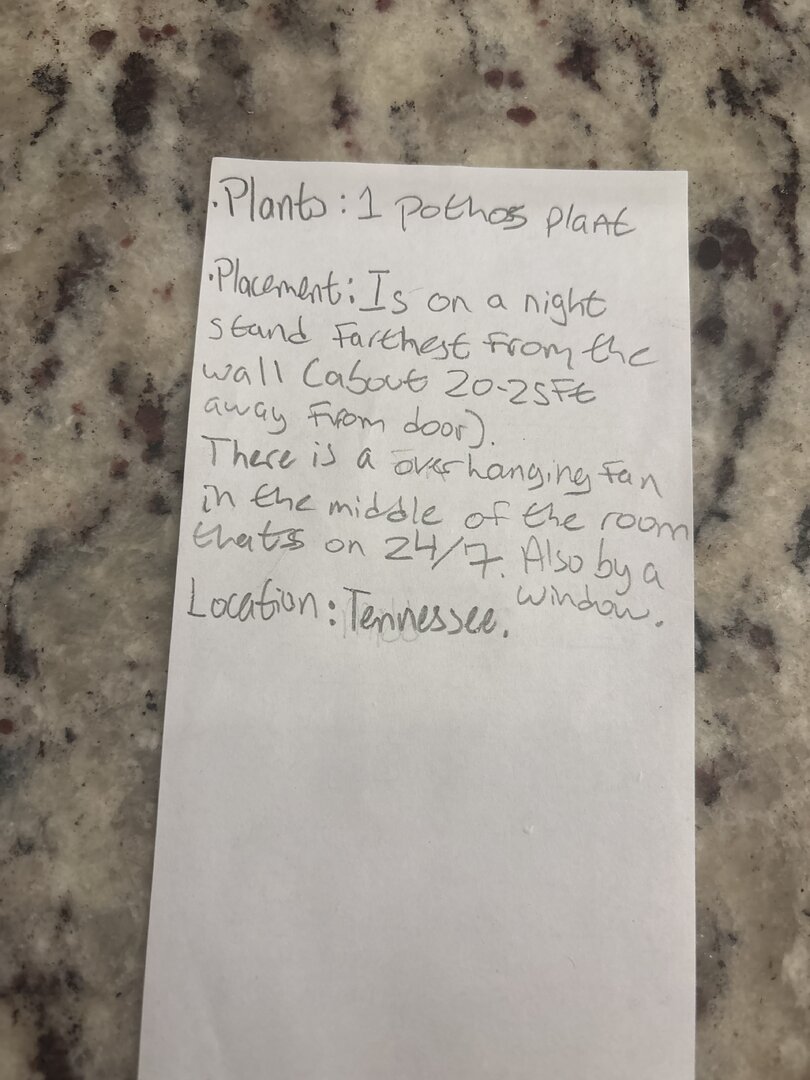 ·Plants: 1 Pothos plant
·Placement: Is on a night
stand farthest from the
wall (about 20-25ft
away from door).
There is a overhanging fan
in the middle of the room
thats on 24/7. Also by a
window.
Location: Tennessee.